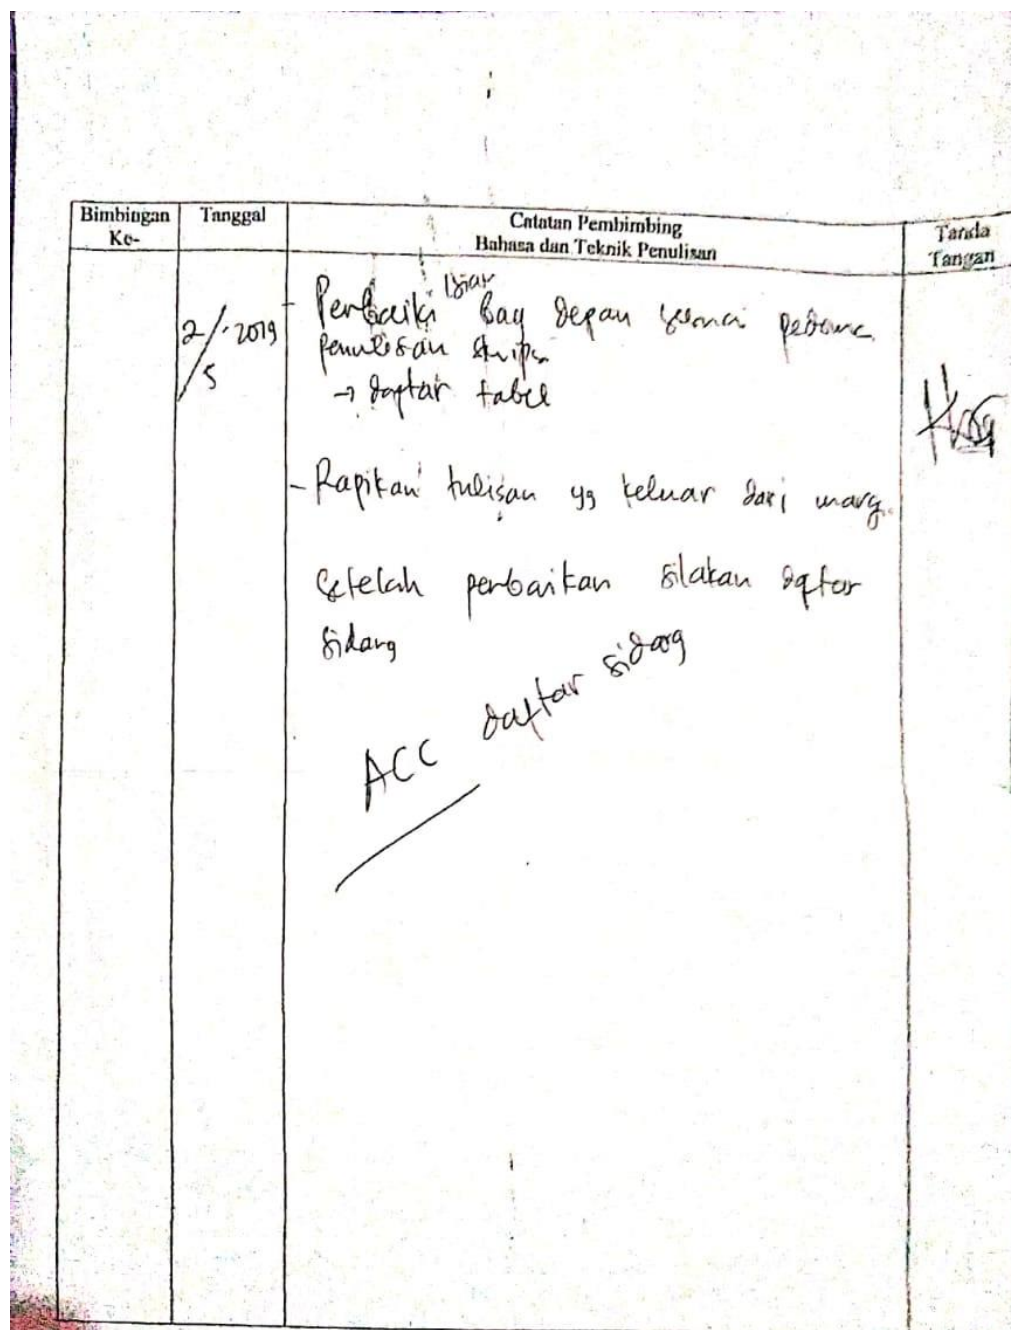 Bimbingan Ke-
Tanggal
Catatan Pembimbing
Bahasa dan Teknik Penulisan
Tanda Tangan
2/5 2019
- Perbaiki bag depan sesuai
penulisan
→ daftar tabel
- Rapikan tulisan yg keluar dari
Setelah perbaikan silakan daftar
sidang
ACC daftar sidang